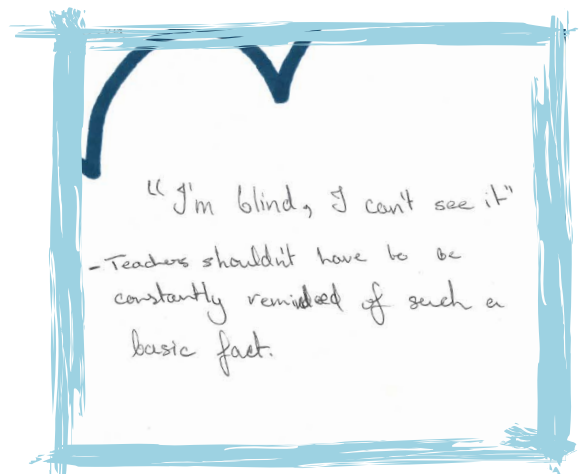 “I'm blind, I can't see it”
- Teachers shouldn't have to be
constantly reminded of such a
basic fact.